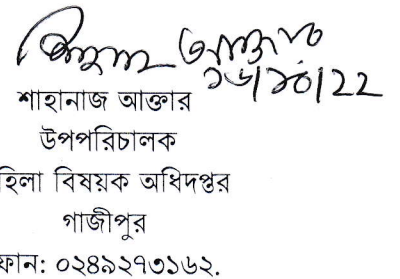 ১৬/১০/২২
শাহানাজ আক্তার
উপপরিচালক
হিলা বিষয়ক অধিদপ্তর
গাজীপুর
ফোন: ০২৪৯২৭৩১৬২.